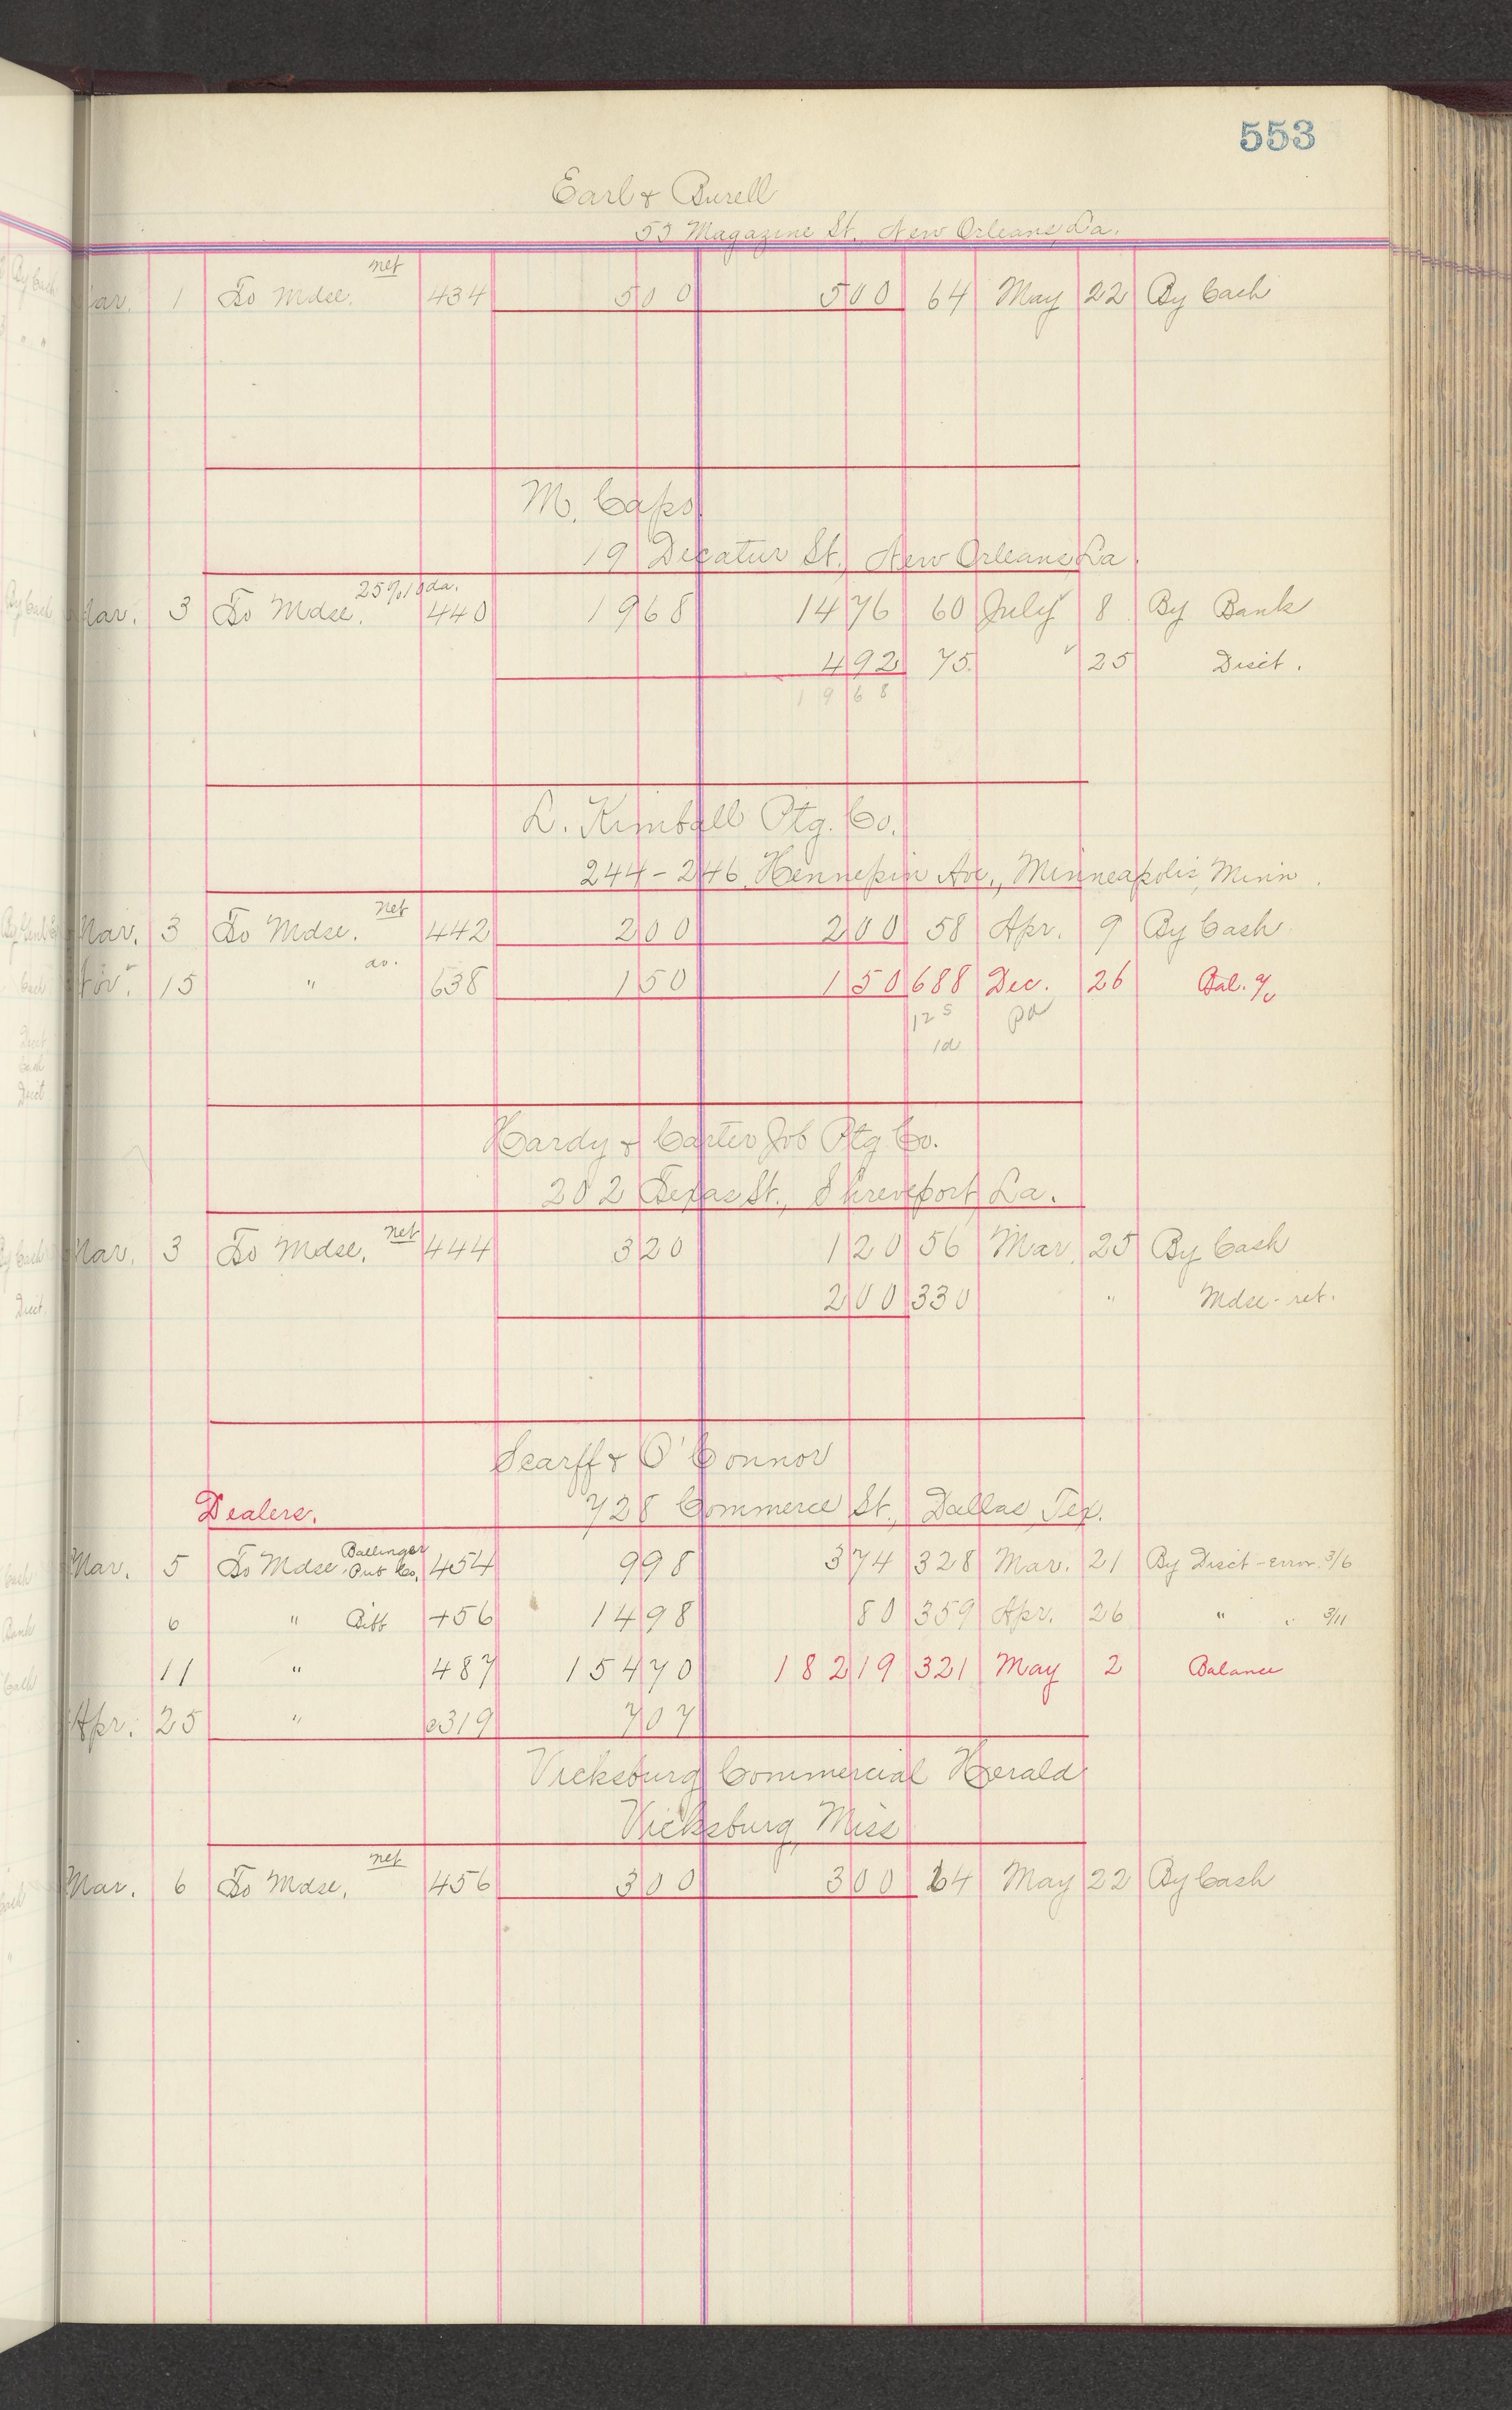 553
Earl & Burell
53 Magazine St. New Orleans, La.
net
Mar. 1 To Mdse. 434 500 500 64 May 22 By Cash
M. Caps
19 Decatur St., New Orleans, La.
25% 10 da.
Mar. 3 To Mdse. 440 1968 1476 60 July 8 By Bank
492 75 25 Disct.
1968
L. Kimball Ptg. Co.
244-246 Hennepin Ave., Minneapolis, Minn.
net
Mar. 3 To Mdse. 442 200 200 58 Apr. 9 By Cash
do.
Nov. 15 " 638 150 150 688 Dec. 26 Bal.
125 pd
Hardy & Carter Job Ptg Co.
202 Texas St., Shreveport, La.
net
Mar. 3 To Mdse. 444 320 120 56 Mar. 25 By Cash
200 330 " Mdse-ret.
Scarff & O'Connor
Dealers. 728 Commerce St., Dallas, Tex.
Mar. 5 To Mdse. Ballinger Pub Co. 454 998 374 328 Mar. 21 By Disct-error 3/6
6 " Bibb 456 1498 80 359 Apr. 26 " " 3/11
11 " 487 15470 18219 321 May 2 Balance
Apr. 25 " 319 707
Vicksburg Commercial Herald
Vicksburg, Miss
net
Mar. 6 To Mdse. 456 300 300 64 May 22 By Cash